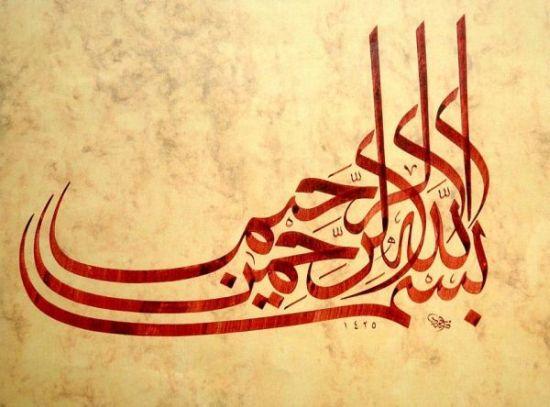 بسم الله الرحمن الرحيم
١٤٢٥